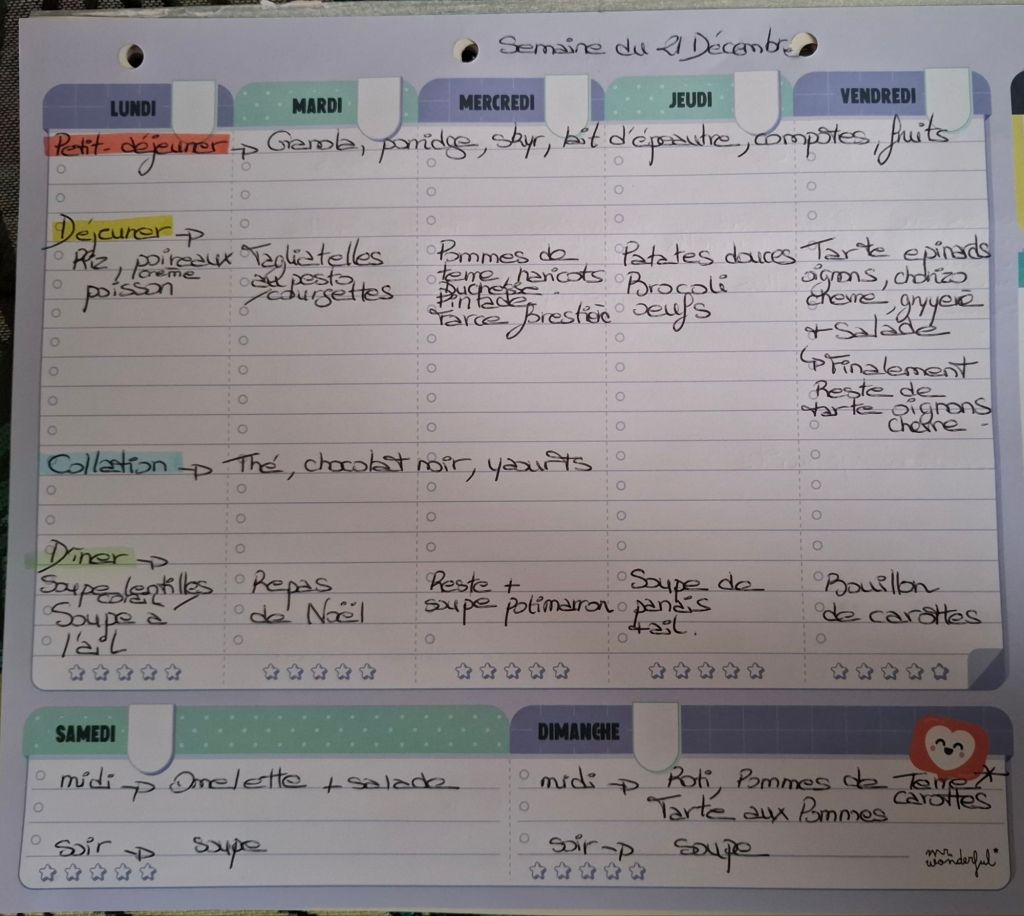 Semaine du 21 Décembre
LUNDI
MARDI
MERCREDI
JEUDI
VENDREDI
Petit-déjeuner → Granola, porridge, skyr, lait d'épeautre, compôtes, fruits
Déjeuner →
Riz, poireaux
crème
poisson
Tagliatelles
au pesto
courgettes
Pommes de
terre, haricots
Duchesse
Pintade
Farce forestière
Patates douces
Brocoli
oeufs
Tarte epinards
oignons, chorizo
chevre, gruyère
+ Salade
↳ Finalement
Reste de
tarte oignons
chevre
Collation → Thé, chocolat noir, yaourts
Dîner →
Soupe lentilles
corail
Soupe à
l'ail
Repas
de Noël
Reste +
soupe potimarron
Soupe de
panais
+ail.
Bouillon
de carottes
SAMEDI
midi → Omelette + salade
soir → soupe
DIMANCHE
midi → Roti, Pommes de Terre *
carottes
Tarte aux Pommes
soir → soupe
mr wonderful*